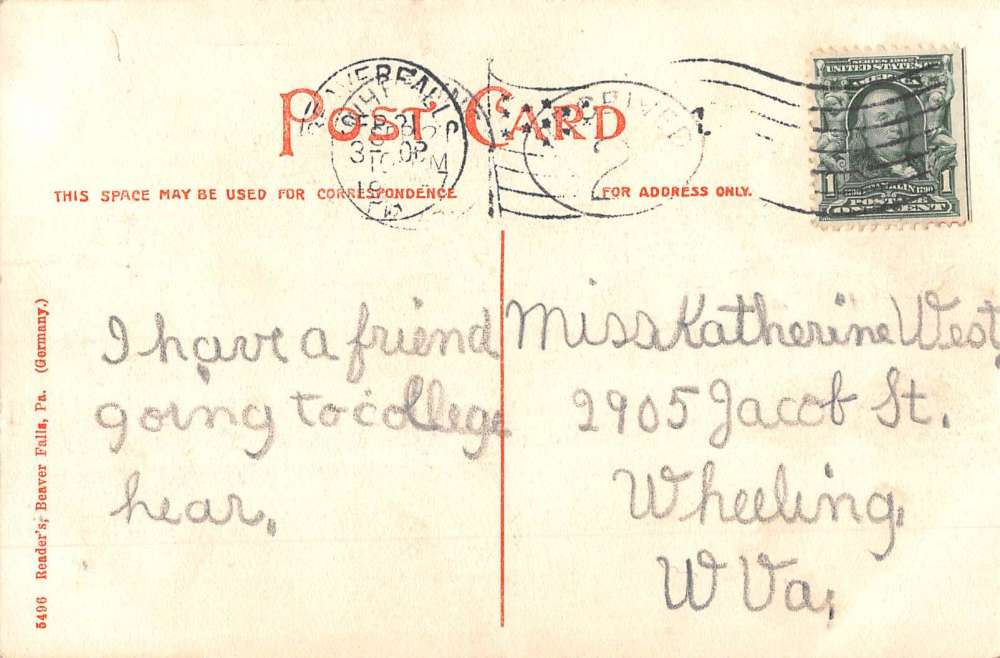 POST CARD
THIS SPACE MAY BE USED FOR CORRESPONDENCE
FOR ADDRESS ONLY.
SERIES 1902
UNITED STATES OF AMERICA
1 FRANKLIN 1790 1
POSTAGE
ONE CENT
BEAVER FALLS
RECEIVED
2
I have a friend
going to college
hear.
Miss Katherine West
2905 Jacob St.
Wheeling.
W Va.
5496 Reader's, Beaver Falls, Pa. (Germany.)